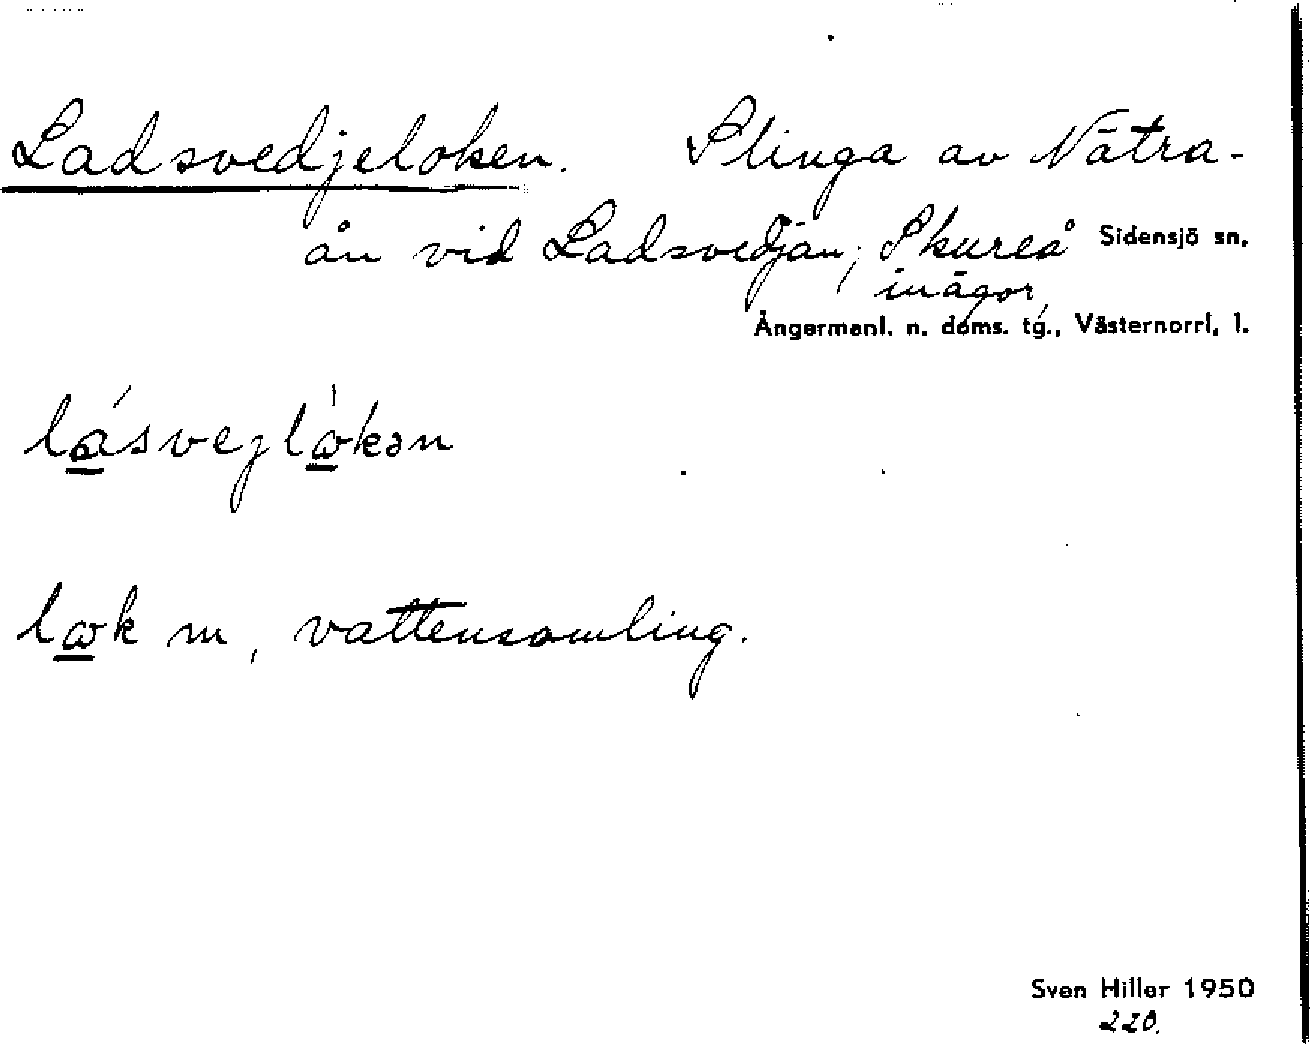 Ladsvedjeloken. Slinga av Nätra-
ån vid Ladsvedjan; Skureå Sidensjö sn,
inägor,
Ångermanl. n. doms. tg., Västernorrl, l.
lásvejlὰkən
lɷk m, vattensamling.
Sven Hiller 1950
220.